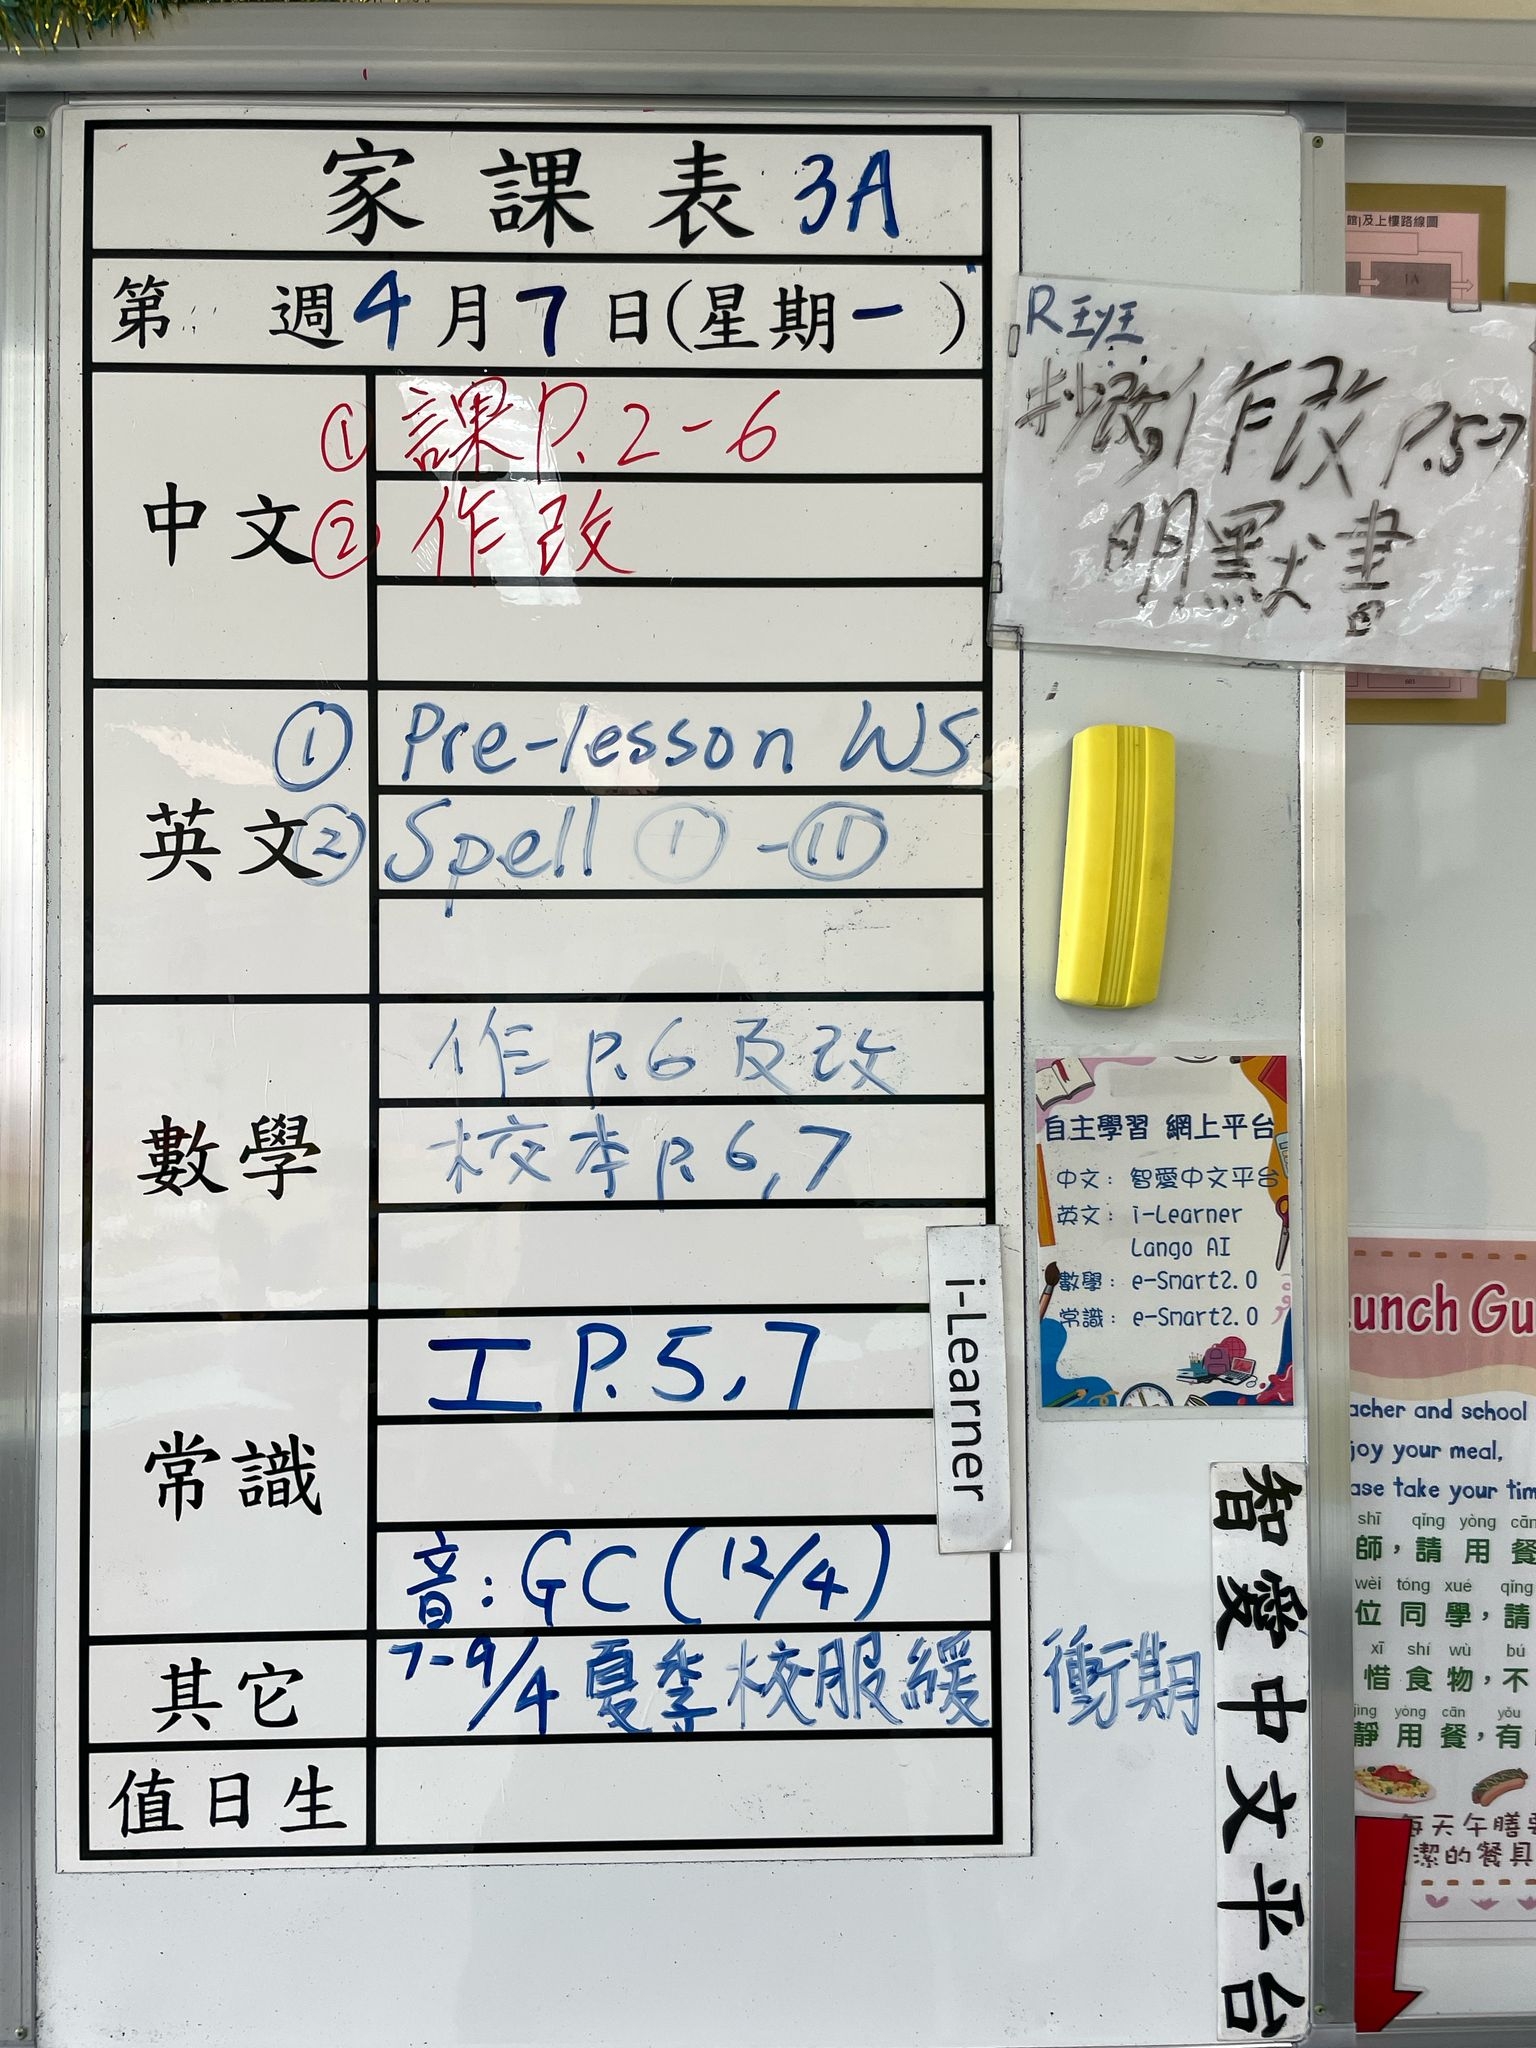 家課表 3A
第 週 4月7日(星期一)
中文
① 課P.2-6
② 作改
英文
① Pre-lesson WS
② Spell ①-⑪
數學
作 P.6 及改
校本 P.6,7
常識
工 P.5,7
音:GC(12/4)
其它
7-9/4 夏季校服緩衝期
值日生
抄改作改 P.5-7
明默書
自主學習 網上平台
中文:智愛中文平台
英文:i-Learner
Lango AI
數學:e-Smart2.0
常識:e-Smart2.0
i-Learner
智愛中文平台
館)及上樓路線圖
1A
601
unch Gu
acher and school
joy your meal,
ase take your tim
shī qǐng yòng cān
師,請用餐
wèi tóng xué qǐng
位同學,請
xī shí wù bú
惜食物,不
jìng yòng cān yǒu
靜用餐,有
每天午膳
潔的餐具